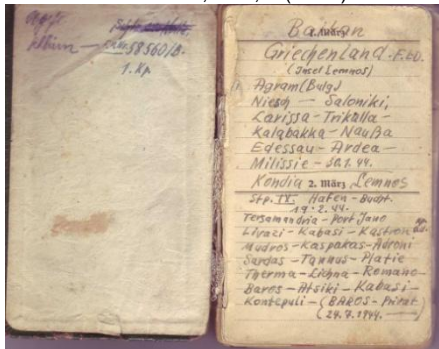 Album — 58560/B.
1. Kp.
Balkan
1. März
Griechenland
(Insel Lemnos)
Agram (Bulg)
Niesch — Saloniki,
Larissa - Trikalla -
Kalabakka - Naußa
Edessau - Ardea -
Milissie - 44.
Kondia 2. März Lemnos
Stp. IX. Hafen - Bucht.
19.2.44.
Tersamandria - Port Jano
Livaci - Kabasi - Kastron
Mudros - Kaspakas - Adroni
Sardas - Tannus - Platie
Therma - Lichna - Romano -
Baros - Atsiki - Kabasi -
Kontepuli - (BAROS - Privat.
(29.7.1944.